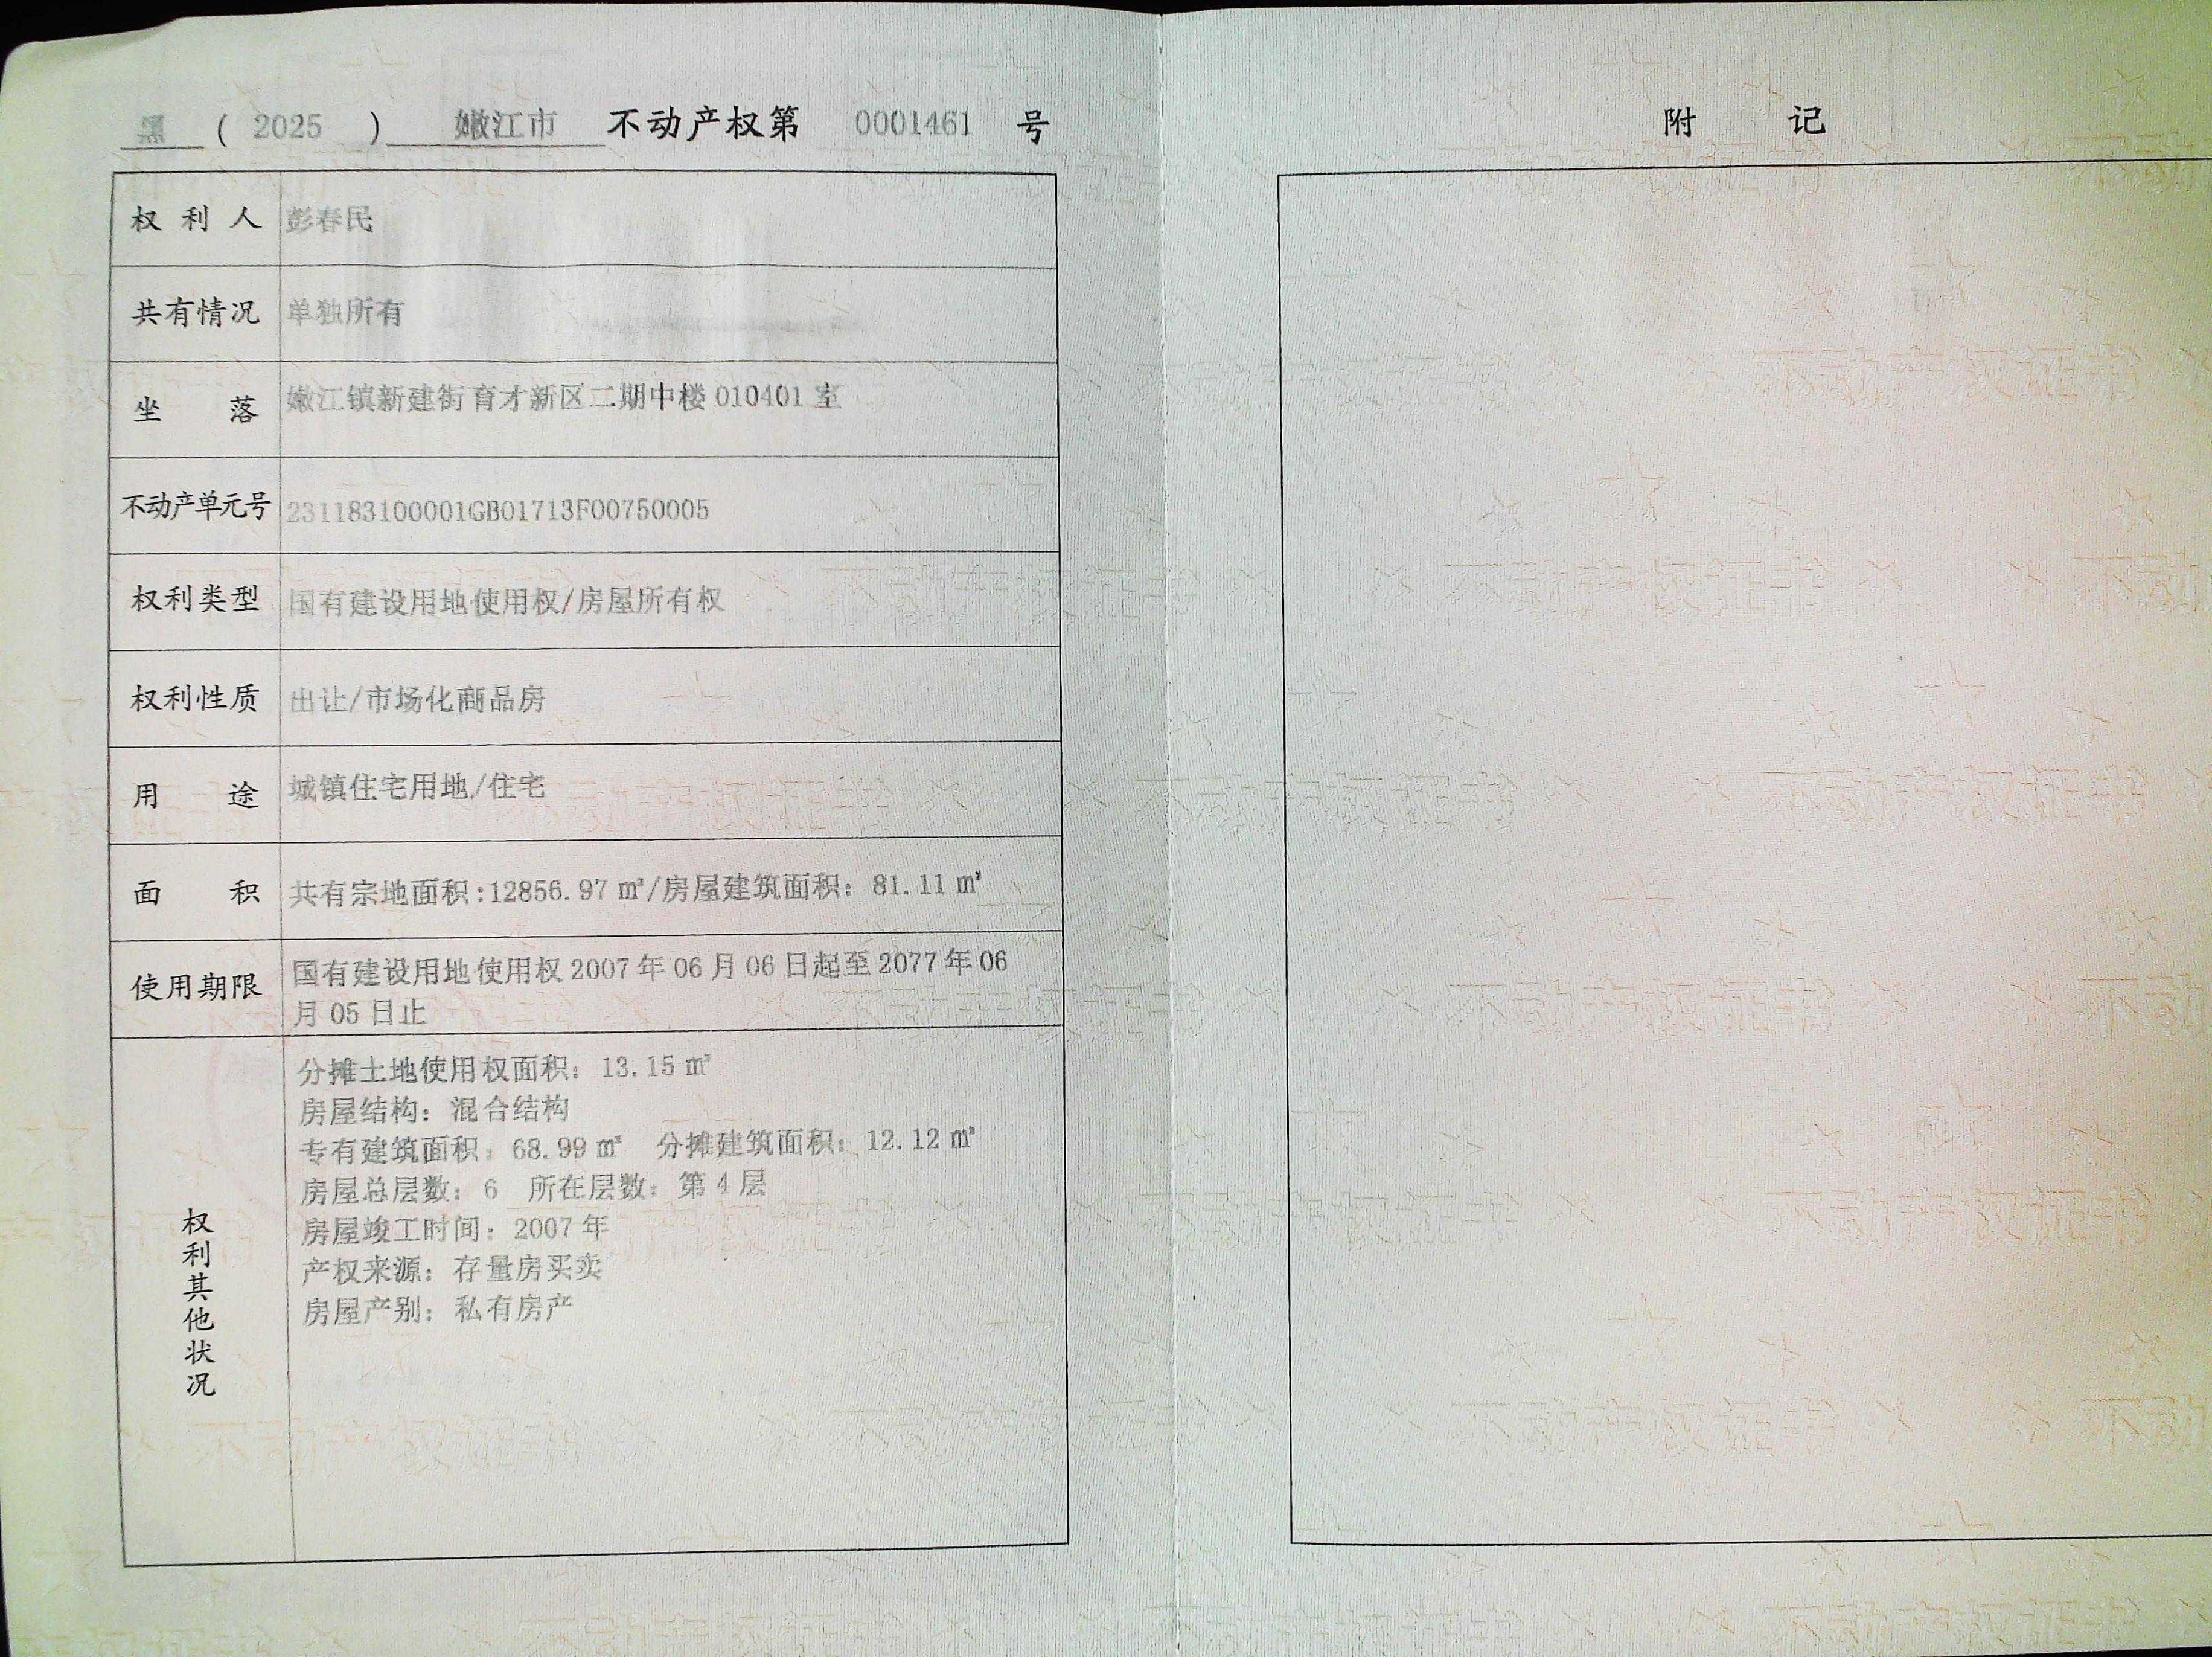 黑 ( 2025 ) 嫩江市 不动产权第 0001461 号
权利人 彭春民
共有情况 单独所有
坐落 嫩江镇新建街育才新区二期中楼 010401 室
不动产单元号 231183100001GB01713F00750005
权利类型 国有建设用地使用权/房屋所有权
权利性质 出让/市场化商品房
用途 城镇住宅用地/住宅
面积 共有宗地面积:12856.97 ㎡/房屋建筑面积：81.11 ㎡
使用期限 国有建设用地使用权 2007 年 06 月 06 日起至 2077 年 06
月 05 日止
权利其他状况
分摊土地使用权面积：13.15 ㎡
房屋结构：混合结构
专有建筑面积：68.99 ㎡ 分摊建筑面积：12.12 ㎡
房屋总层数：6 所在层数：第 4 层
房屋竣工时间：2007 年
产权来源：存量房买卖
房屋产别：私有房产
附 记